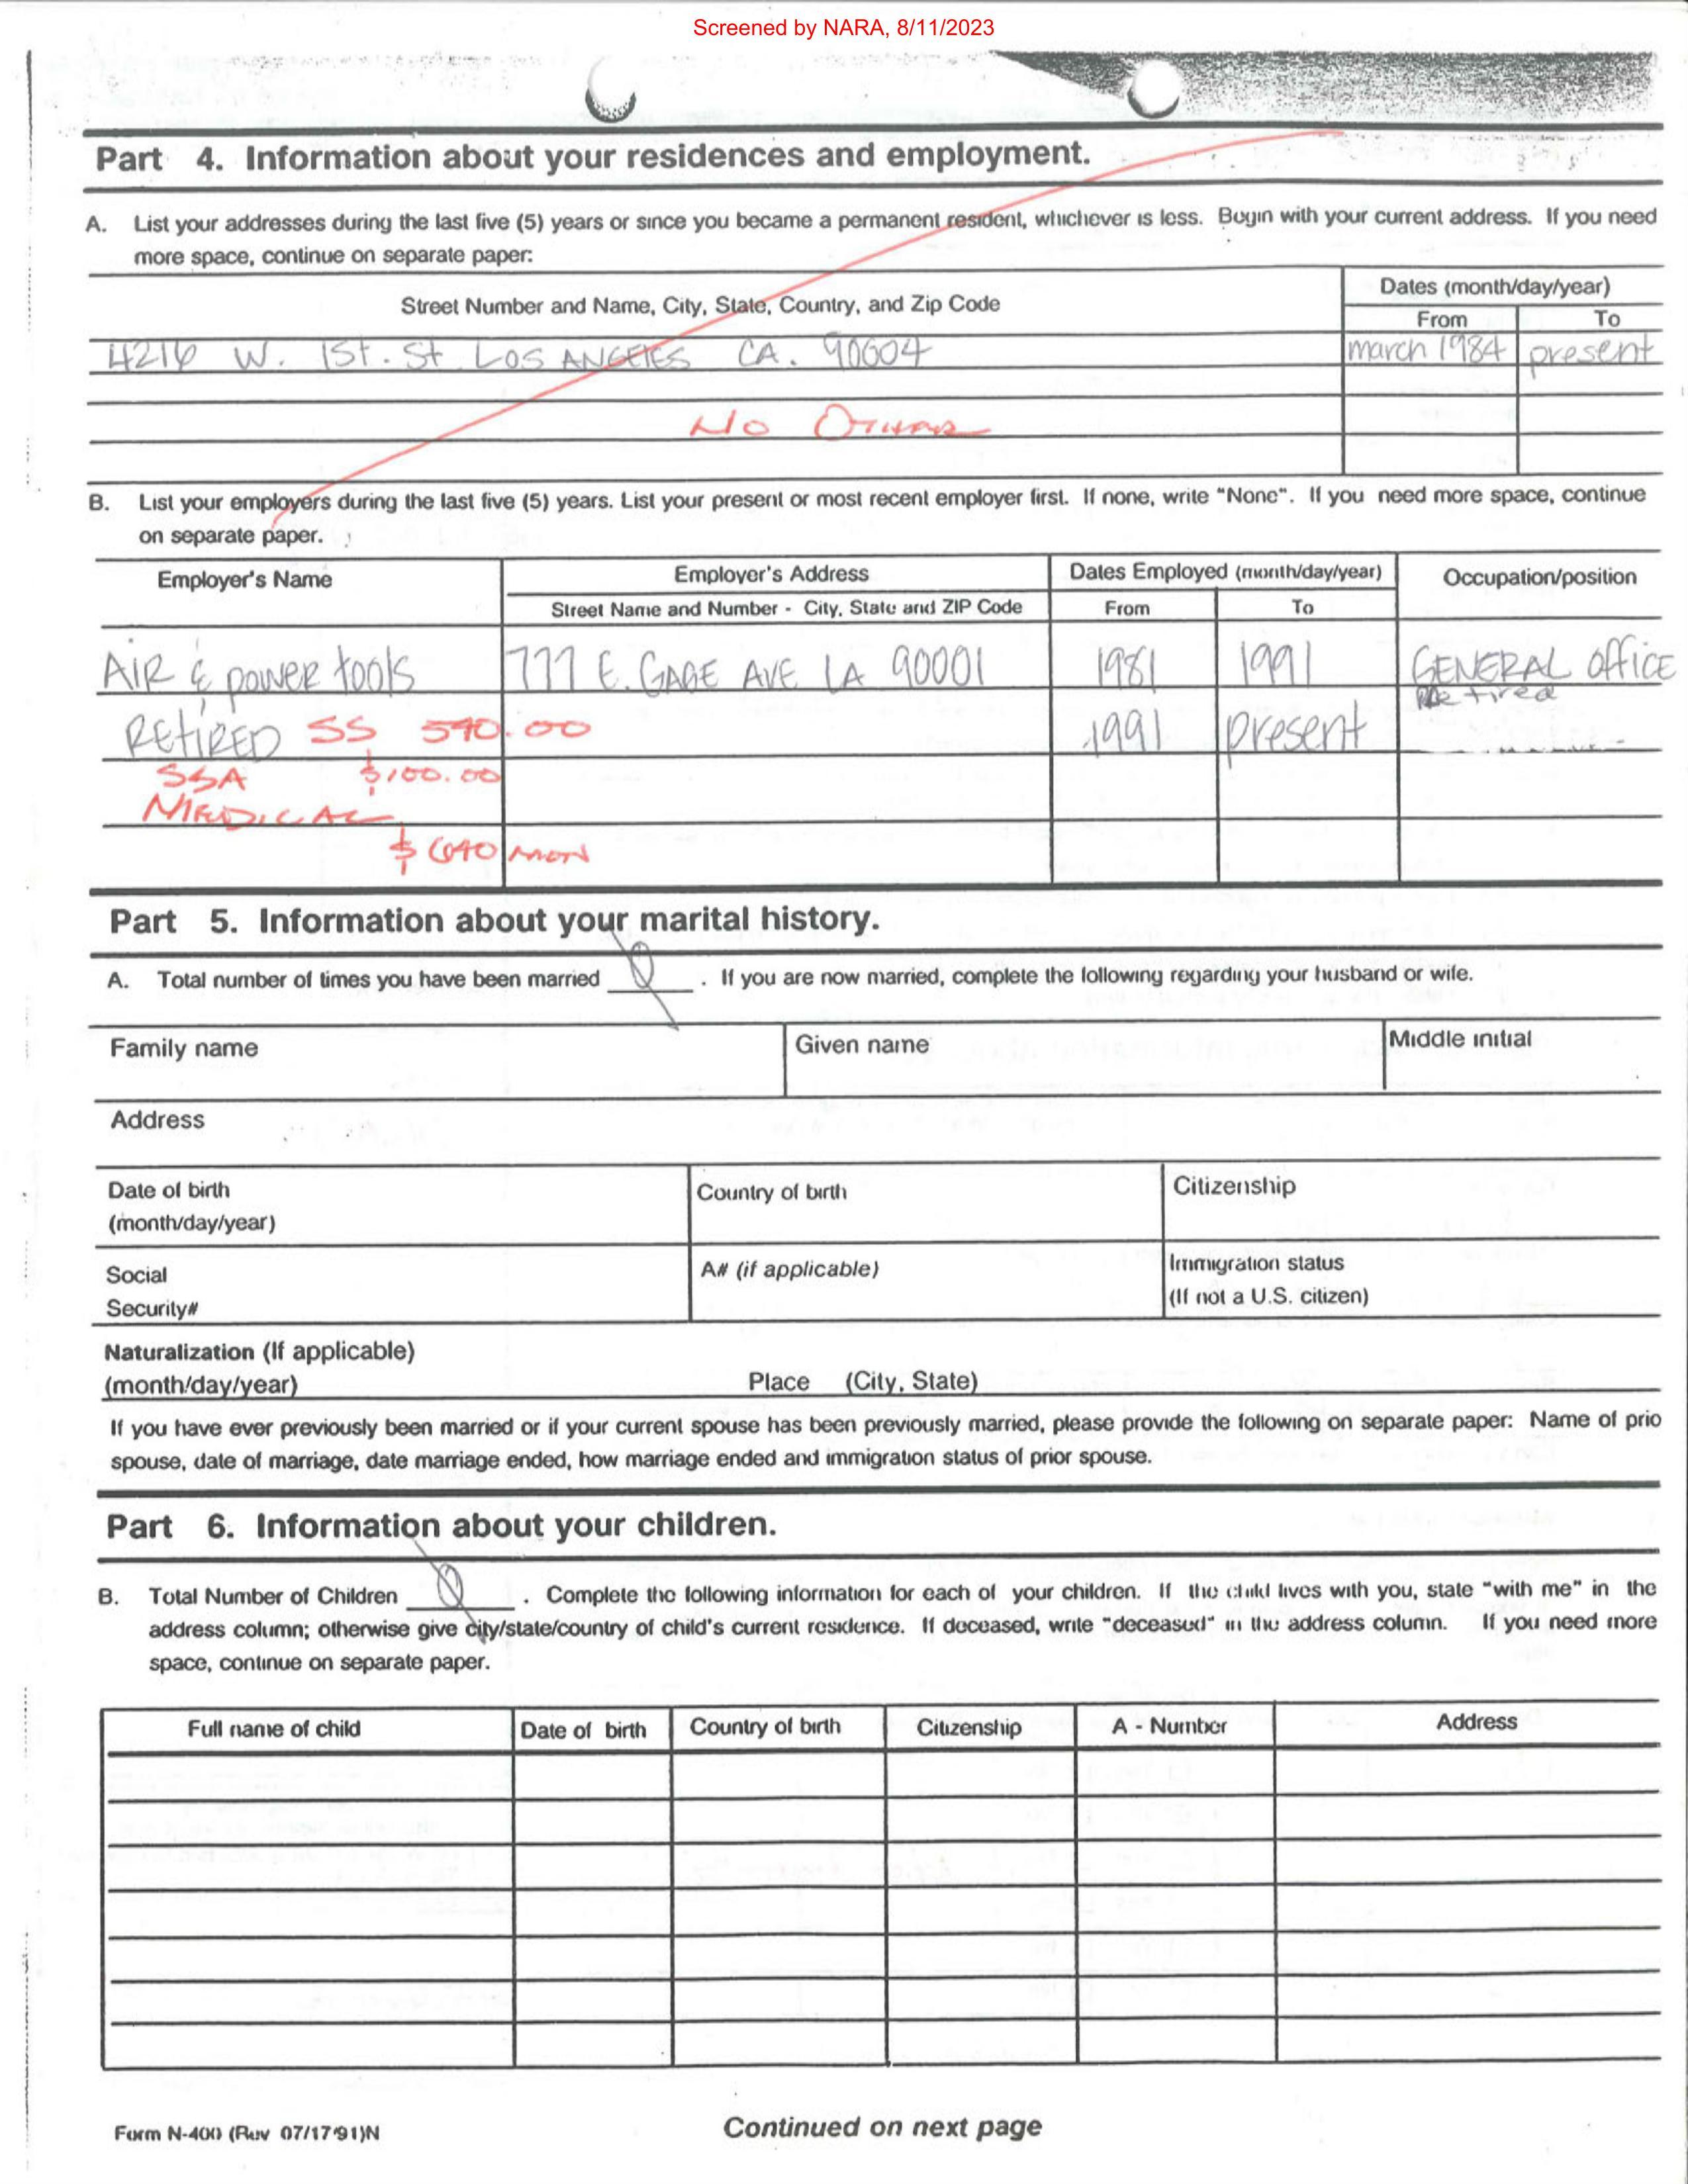 Screened by NARA, 8/11/2023
Part 4. Information about your residences and employment.
A. List your addresses during the last five (5) years or since you became a permanent resident, whichever is less. Begin with your current address. If you need
more space, continue on separate paper:
Street Number and Name, City, State, Country, and Zip Code
Dates (month/day/year)
From To
4216 W. 1St. St LOS ANGELES CA. 90004 march 1984 present
NO OTHER
B. List your employers during the last five (5) years. List your present or most recent employer first. If none, write "None". If you need more space, continue
on separate paper.
Employer's Name Employer's Address Dates Employed (month/day/year) Occupation/position
Street Name and Number - City, State and ZIP Code From To
AIR & power tools 777 E. GAGE AVE LA 90001 1981 1991 GENERAL office
Retired
RETIRED SS 540.00 1991 present
SSA $100.00
MEDICAL
$ 640 MON
Part 5. Information about your marital history.
A. Total number of times you have been married 0 . If you are now married, complete the following regarding your husband or wife.
Family name Given name Middle initial
Address
Date of birth Country of birth Citizenship
(month/day/year)
Social A# (if applicable) Immigration status
Security# (If not a U.S. citizen)
Naturalization (If applicable)
(month/day/year) Place (City, State)
If you have ever previously been married or if your current spouse has been previously married, please provide the following on separate paper: Name of prio
spouse, date of marriage, date marriage ended, how marriage ended and immigration status of prior spouse.
Part 6. Information about your children.
B. Total Number of Children 0 . Complete the following information for each of your children. If the child lives with you, state "with me" in the
address column; otherwise give city/state/country of child's current residence. If deceased, write "deceased" in the address column. If you need more
space, continue on separate paper.
Full name of child Date of birth Country of birth Citizenship A - Number Address
Form N-400 (Rev 07/17/91)N Continued on next page